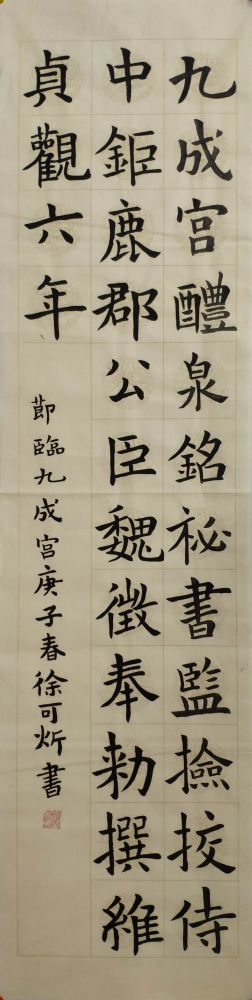 九成宮醴泉銘祕書監撿挍侍
中鉅鹿郡公臣魏徵奉勑撰維
貞觀六年
節臨九成宮庚子春徐可炘書